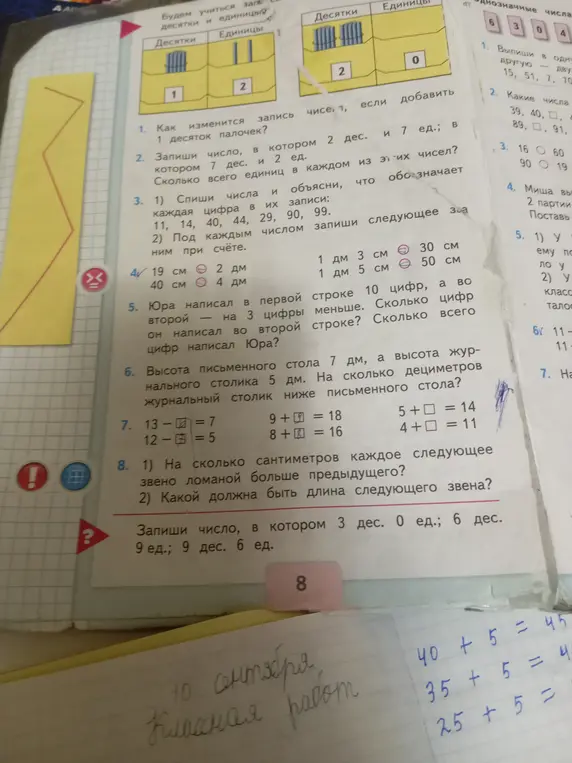 Будем учиться
десятки и единицы
Десятки Единицы
1 2
Десятки Единицы
2 0
1. Как изменится запись чисел, если добавить
1 десяток палочек?
2. Запиши число, в котором 2 дес. и 7 ед.; в
котором 7 дес. и 2 ед.
Сколько всего единиц в каждом из этих чисел?
3. 1) Спиши числа и объясни, что обозначает
каждая цифра в их записи:
11, 14, 40, 44, 29, 90, 99.
2) Под каждым числом запиши следующее за
ним при счёте.
4. 19 см 2 дм 1 дм 3 см 30 см
40 см 4 дм 1 дм 5 см 50 см
5. Юра написал в первой строке 10 цифр, а во
второй — на 3 цифры меньше. Сколько цифр
он написал во второй строке? Сколько всего
цифр написал Юра?
6. Высота письменного стола 7 дм, а высота жур-
нального столика 5 дм. На сколько дециметров
журнальный столик ниже письменного стола?
7. 13 − □ = 7 9 + □ = 18 5 + □ = 14
12 − □ = 5 8 + □ = 16 4 + □ = 11
8. 1) На сколько сантиметров каждое следующее
звено ломаной больше предыдущего?
2) Какой должна быть длина следующего звена?
!
?
Запиши число, в котором 3 дес. 0 ед.; 6 дес.
9 ед.; 9 дес. 6 ед.
8
6 3 0 4
1. Выпиши в
другую —
15, 51, 7,
2. Какие числа
39, 40, □,
89, □, 91,
3. 16 ○ 60
90 ○ 19
4. Миша
2 партии
Поставь
5. 1) У
ему
ло у
2) У
6. 11 −
11
7.
10 сентября
Классная работ
40 + 5 = 45
35 + 5 = 4
25 + 5 =